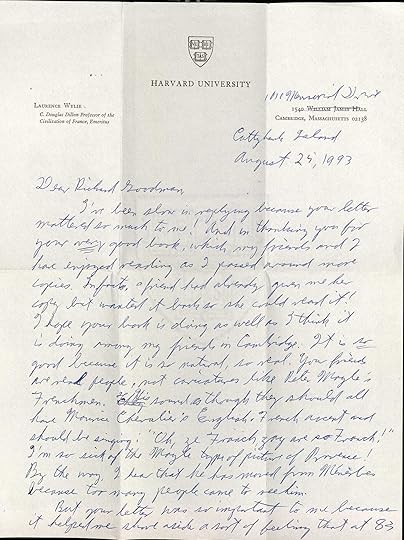 HARVARD UNIVERSITY
LAURENCE WYLIE
C. Douglas Dillon Professor of the
Civilization of France, Emeritus
Memorial Drive
1540 WILLIAM JAMES HALL
CAMBRIDGE, MASSACHUSETTS 02138
Cuttyhunk Island
August 25, 1993
Dear Richard Goodman,
I've been slow in replying because your letter
mattered so much to me! And in thanking you for
your very good book, which my friends and I
have enjoyed reading as I passed around more
copies. In fact, a friend had already given me her
copy but wanted it back so she could read it!
I hope your book is doing as well as I think it
is doing among my friends in Cambridge. It is so
good because it is so natural, so real. Your friends
are real people, not caricatures like Pete Mayle's
Frenchmen. sound as though they should all
have Maurice Chevalier's English-French accent and
should be singing: "Oh, ze French, zay are so French!"
I'm so sick of the Mayle type of picture of Provence!
By the way, I hear that he has moved from Ménerbes
because too many people came to see him.
But your letter was so important to me because
it helped me shove aside a sort of feeling that at 83